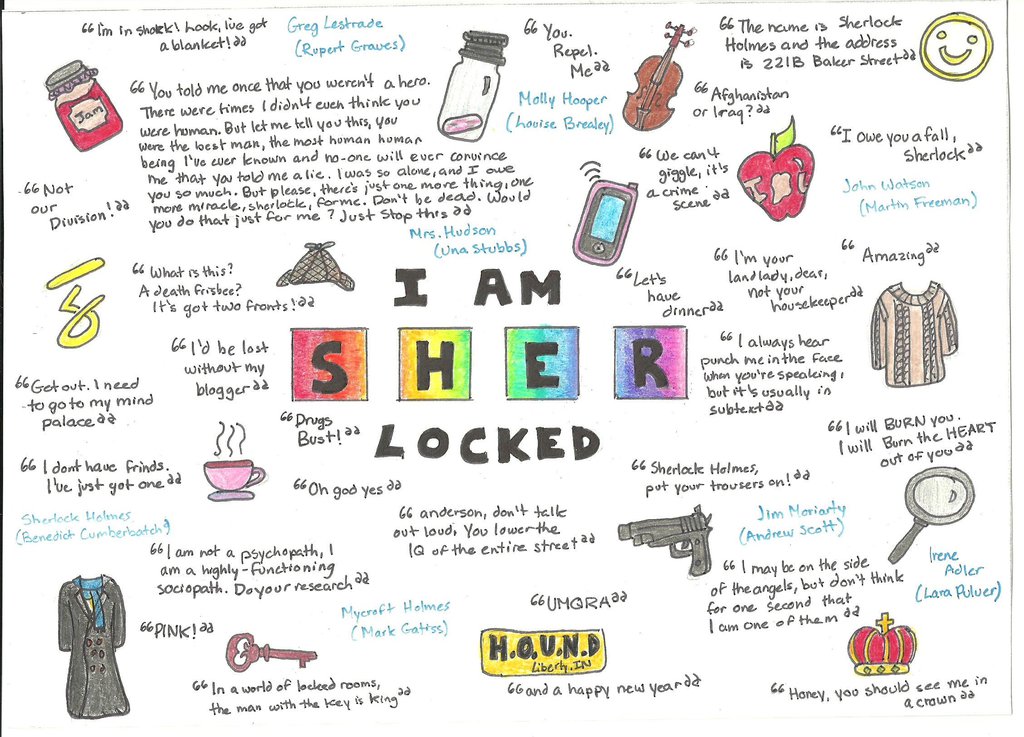 “I'm in shock! Look, I've got
a blanket!”
Greg Lestrade
(Rupert Graves)
“You.
Repel.
Me”
“The name is Sherlock
Holmes and the address
is 221B Baker Street”
Jam
“You told me once that you weren't a hero.
There were times I didn't even think you
were human. But let me tell you this, you
were the best man, the most human human
being I've ever known and no-one will ever convince
me that you told me a lie. I was so alone, and I owe
you so much. But please, there's just one more thing, one
more miracle, sherlock, for me. Don't be dead. Would
you do that just for me? Just stop this”
Molly Hooper
(Louise Brealey)
“Afghanistan
or Iraq?”
“I owe you a fall,
Sherlock”
IOU
“We can't
giggle, it's
a crime
scene”
John Watson
(Martin Freeman)
“Not
our
Division!”
Mrs. Hudson
(Una Stubbs)
“What is this?
A death frisbee?
It's got two fronts!”
“Let's
have
dinner”
“I'm your
landlady, dear,
not your
housekeeper”
“Amazing”
I AM
SHER
LOCKED
“I'd be lost
without my
blogger”
“I always hear
punch me in the face
when you're speaking,
but it's usually in
subtext”
“Get out. I need
to go to my mind
palace”
“Drugs
Bust!”
“I will BURN you.
I will Burn the HEART
out of you”
“I dont have frinds.
I've just got one”
“Oh god yes”
“Sherlock Holmes,
put your trousers on!”
Sherlock Holmes
(Benedict Cumberbatch)
“anderson, don't talk
out loud, You lower the
IQ of the entire street”
Jim Moriarty
(Andrew Scott)
“I am not a psychopath, I
am a highly-functioning
sociopath. Do your research”
“I may be on the side
of the angels, but don't think
for one second that
I am one of them”
Irene
Adler
(Lara Pulver)
Mycroft Holmes
(Mark Gatiss)
“PINK!”
“UMQRA”
H.O.U.N.D
Liberty, IN
“In a world of locked rooms,
the man with the key is king”
“and a happy new year”
“Honey, you should see me in
a crown”